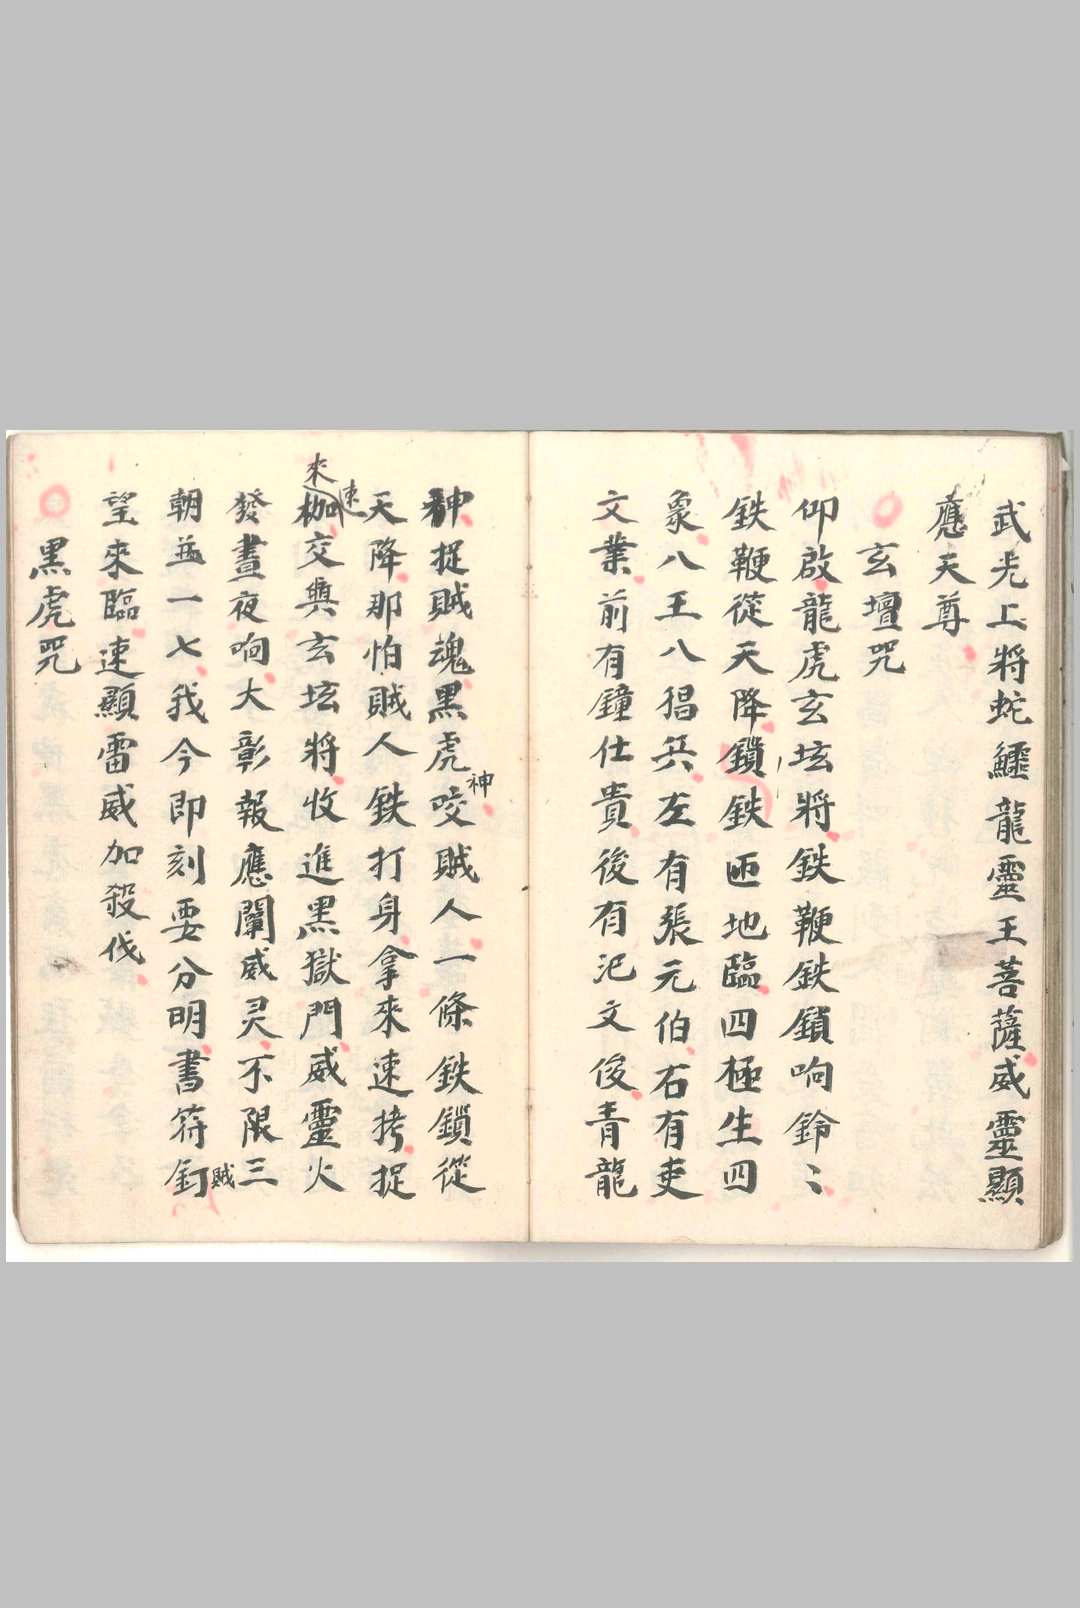 武光上將蛇鱷龍靈王菩薩威靈顯
應天尊
玄壇咒
仰啟龍虎玄坛將鉄鞭鉄鎖响鈴〻
鉄鞭從天降鎖鉄匝地臨四極生四
象八王八猖兵左有張元伯右有吏
文業前有鐘仕貴後有氾文俊青龍
神捉賊魂黑虎神咬賊人一條鉄鎖從
天降那怕賊人鉄打身拿來速拷捉
來枷速交與玄坛將收進黑獄門威靈火
發晝夜响大彰報應闡威灵不限三
朝並一七我今即刻要分明書符釘賊
望來臨速顯雷威加殺伐
黑虎咒